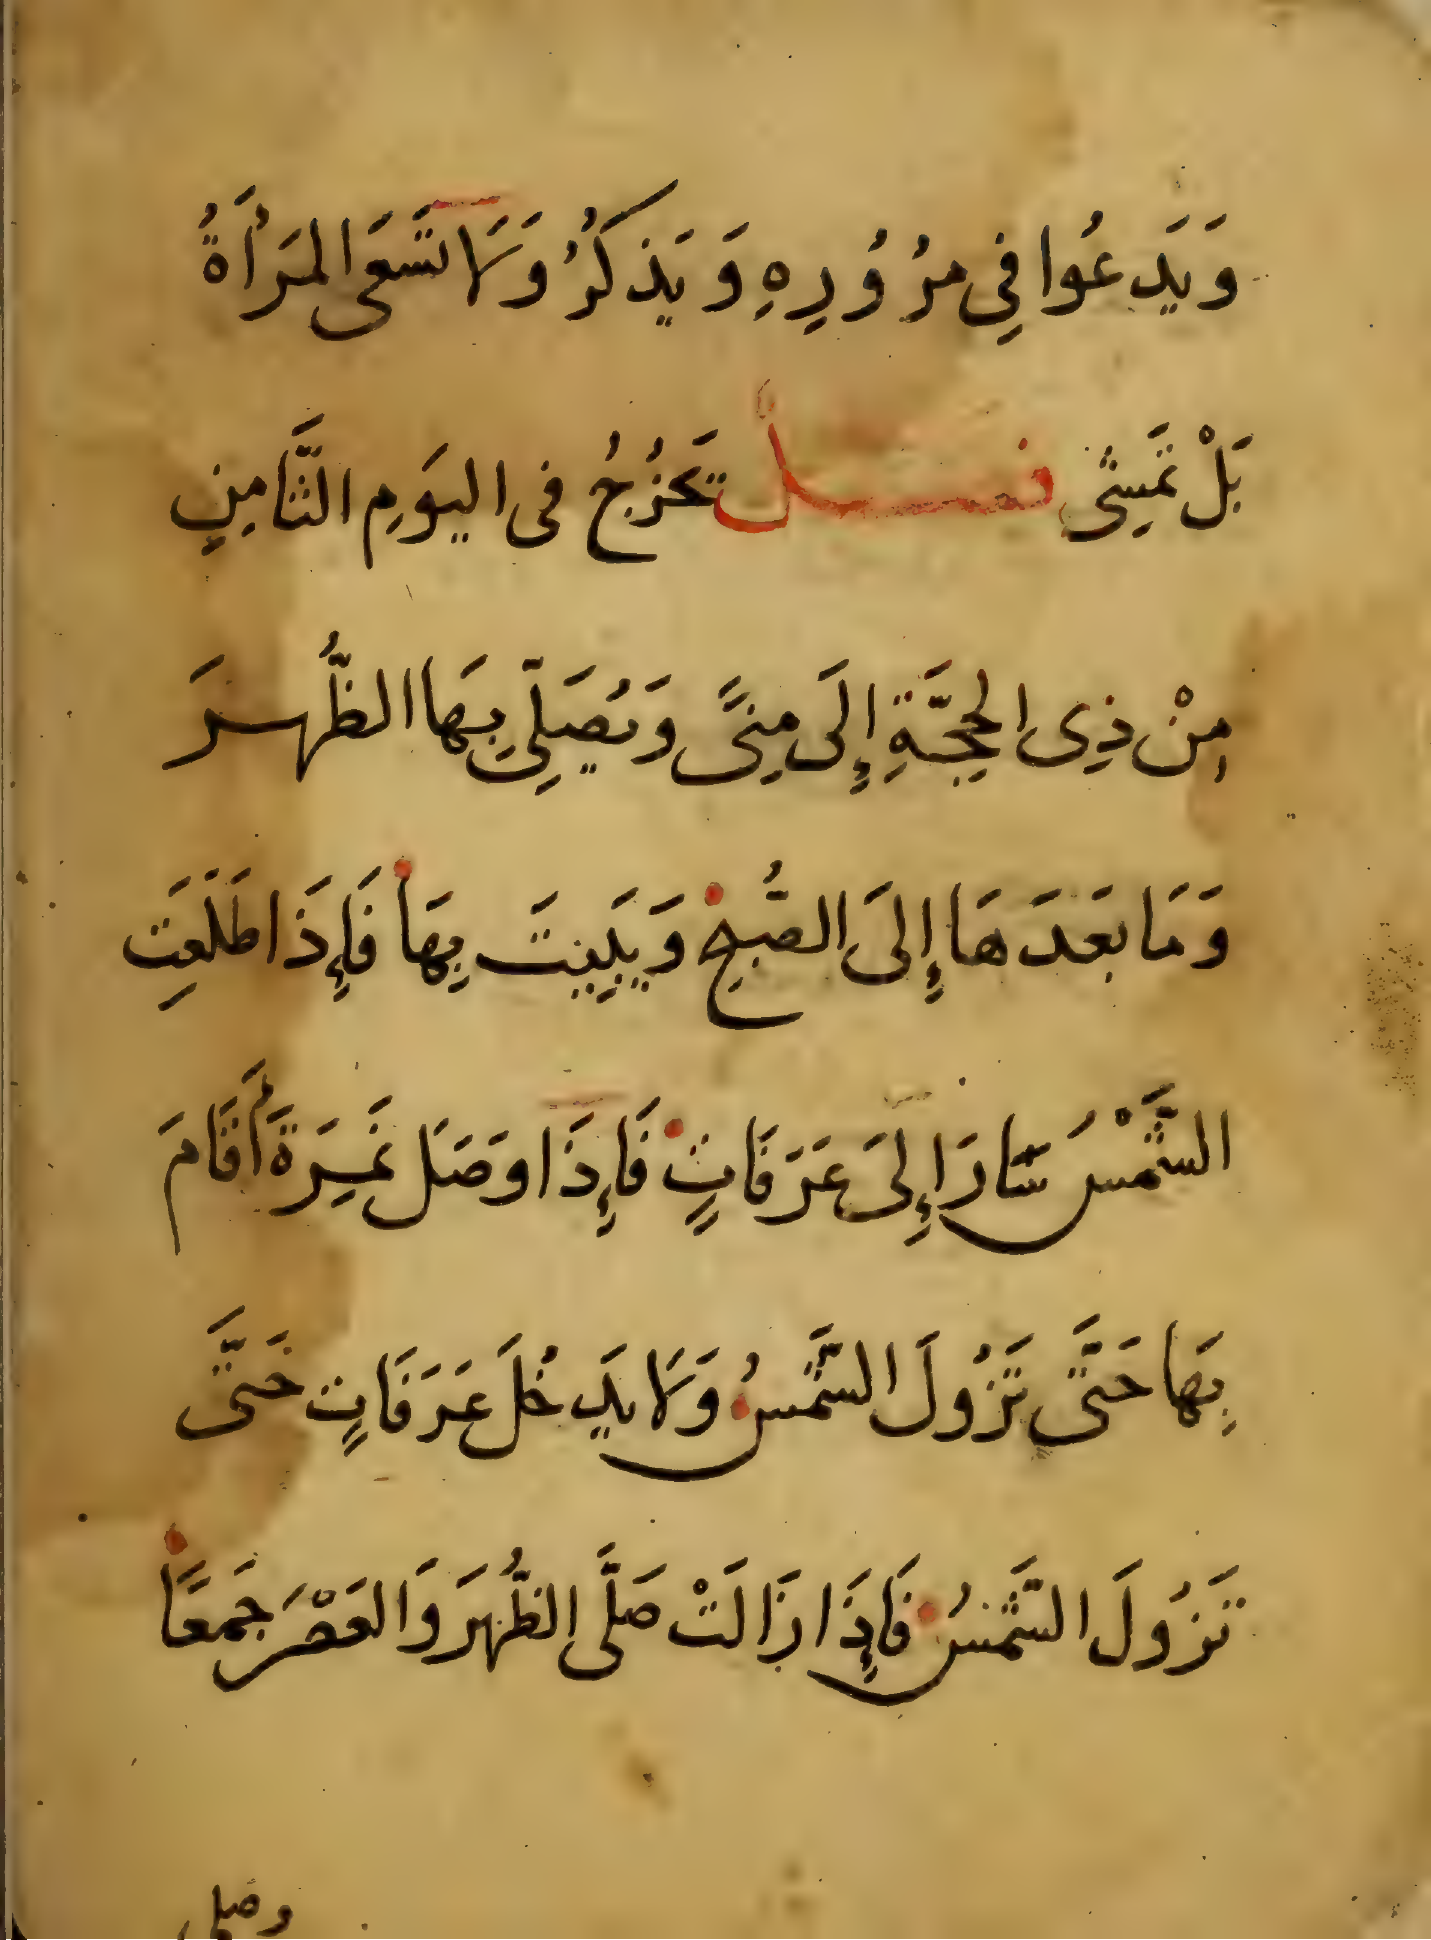 وَيَدعُوا فِي مرُوُرِهِ وَيَذكَرُ وَلَا تَسَعَى المَرَأَةُ
بَلْ تَمِشىِ فصل تَخرُجُ فى اليوَمِ الثَّامِنِ
مِنْ ذِى الحِجَّةِ إِلَى مِنىً وَيُصَلِّى بِهَا الظُّهرَ
وَمَا بَعَدَهَا إِلىَ الصُّبحِ وَيَبِيتَ بِهَا فَإِذَا طَلَعَتِ
الشَّمْسَ سَارَ إِلىَ عَرَفَاتٍ فَإِذَا وَصَلَ نَمِرَةَ أَقَامَ
بِهَا حَتَّى تَزُولَ الشَّمسُ وَلَا يَدخُلَ عَرَفَاتٍ حَتَّى
تَزُولَ الشَّمسُ فَإِذَا زَالَتْ صَلَّى الظُّهرَ وَالعَصْرَ جَمعًا
وصلى